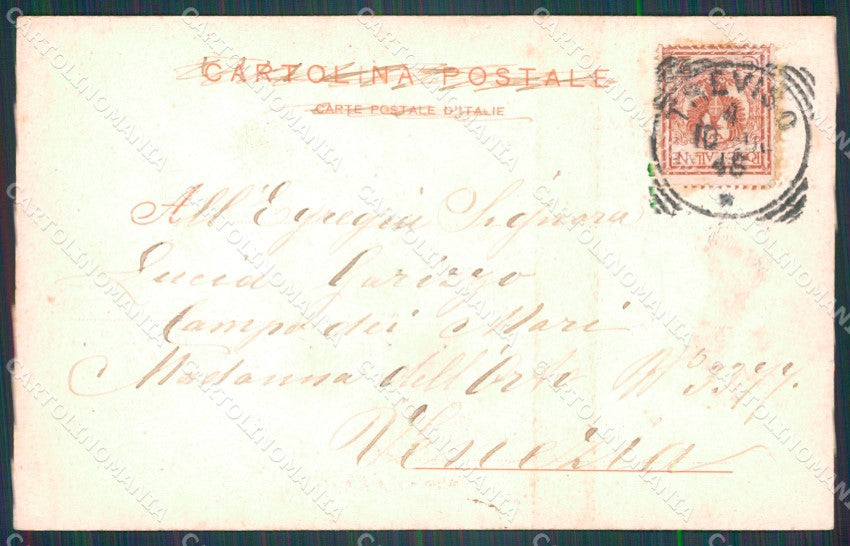 CARTOLINA POSTALE
CARTE POSTALE D'ITALIE
TREVISO
4
10
48
POSTE ITALIANE
All'Egregia Signora
Lucia Garizzo
Campo dei Mori
Madonna dell'Orto Nº 3377.
Venezia
CARTOLINOMANIA